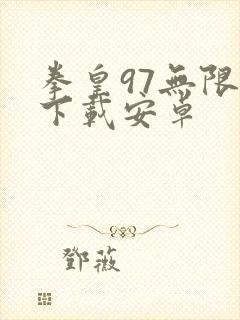 拳皇97無限
下載安卓
鄧薇